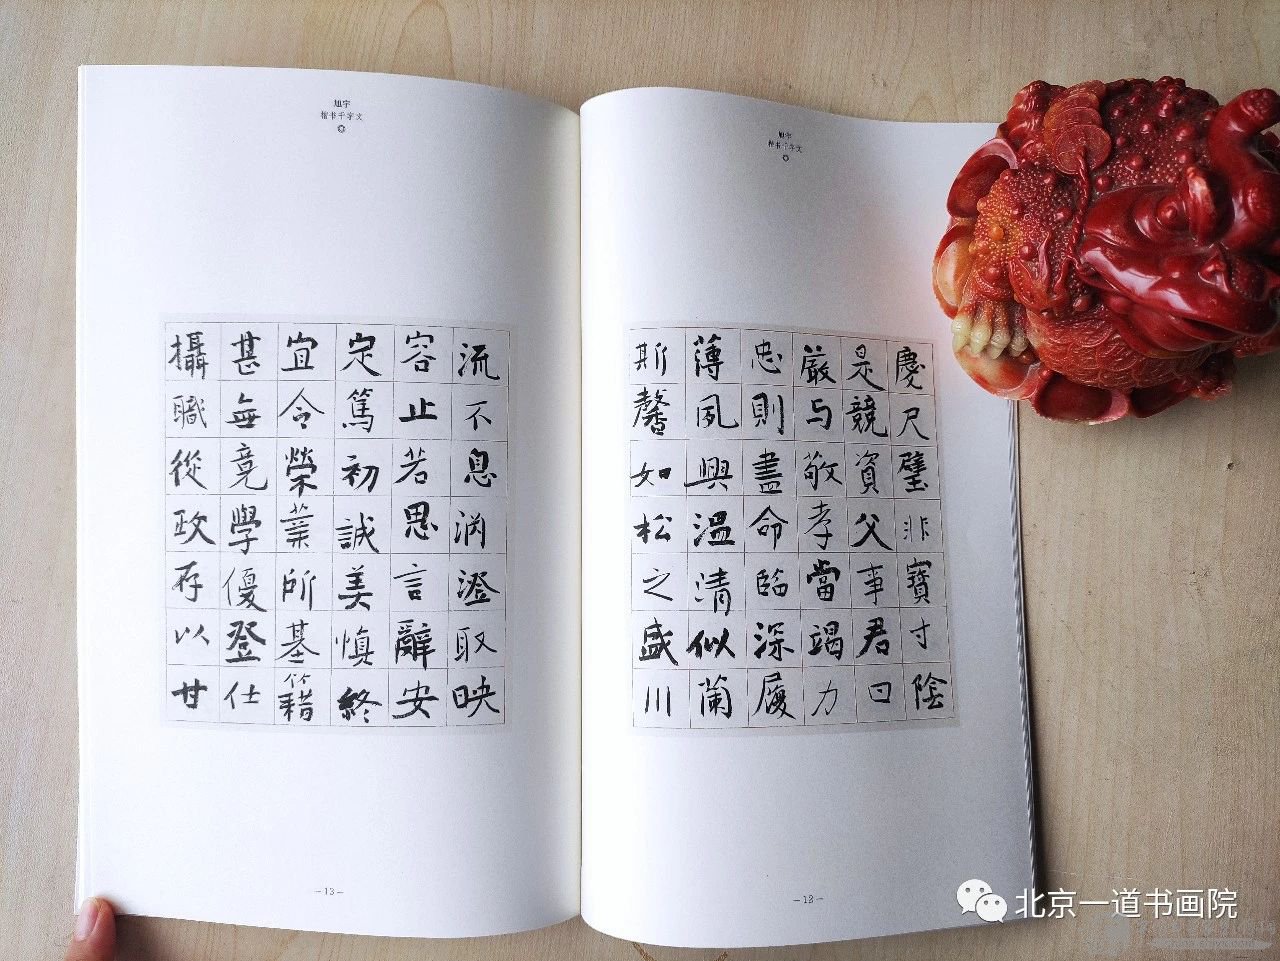 旭宇
楷书千字文
慶尺璧非寶寸陰
是競資父事君曰
厳与敬孝當竭力
忠則盡命臨深履
薄夙興温清似蘭
斯馨如松之盛川
-12-
旭宇
楷书千字文
流不息渊澄取映
容止若思言辭安
定篤初誠美慎終
宜令榮業所基籍
甚無竟學優登仕
攝職從政存以甘
-13-
北京一道书画院